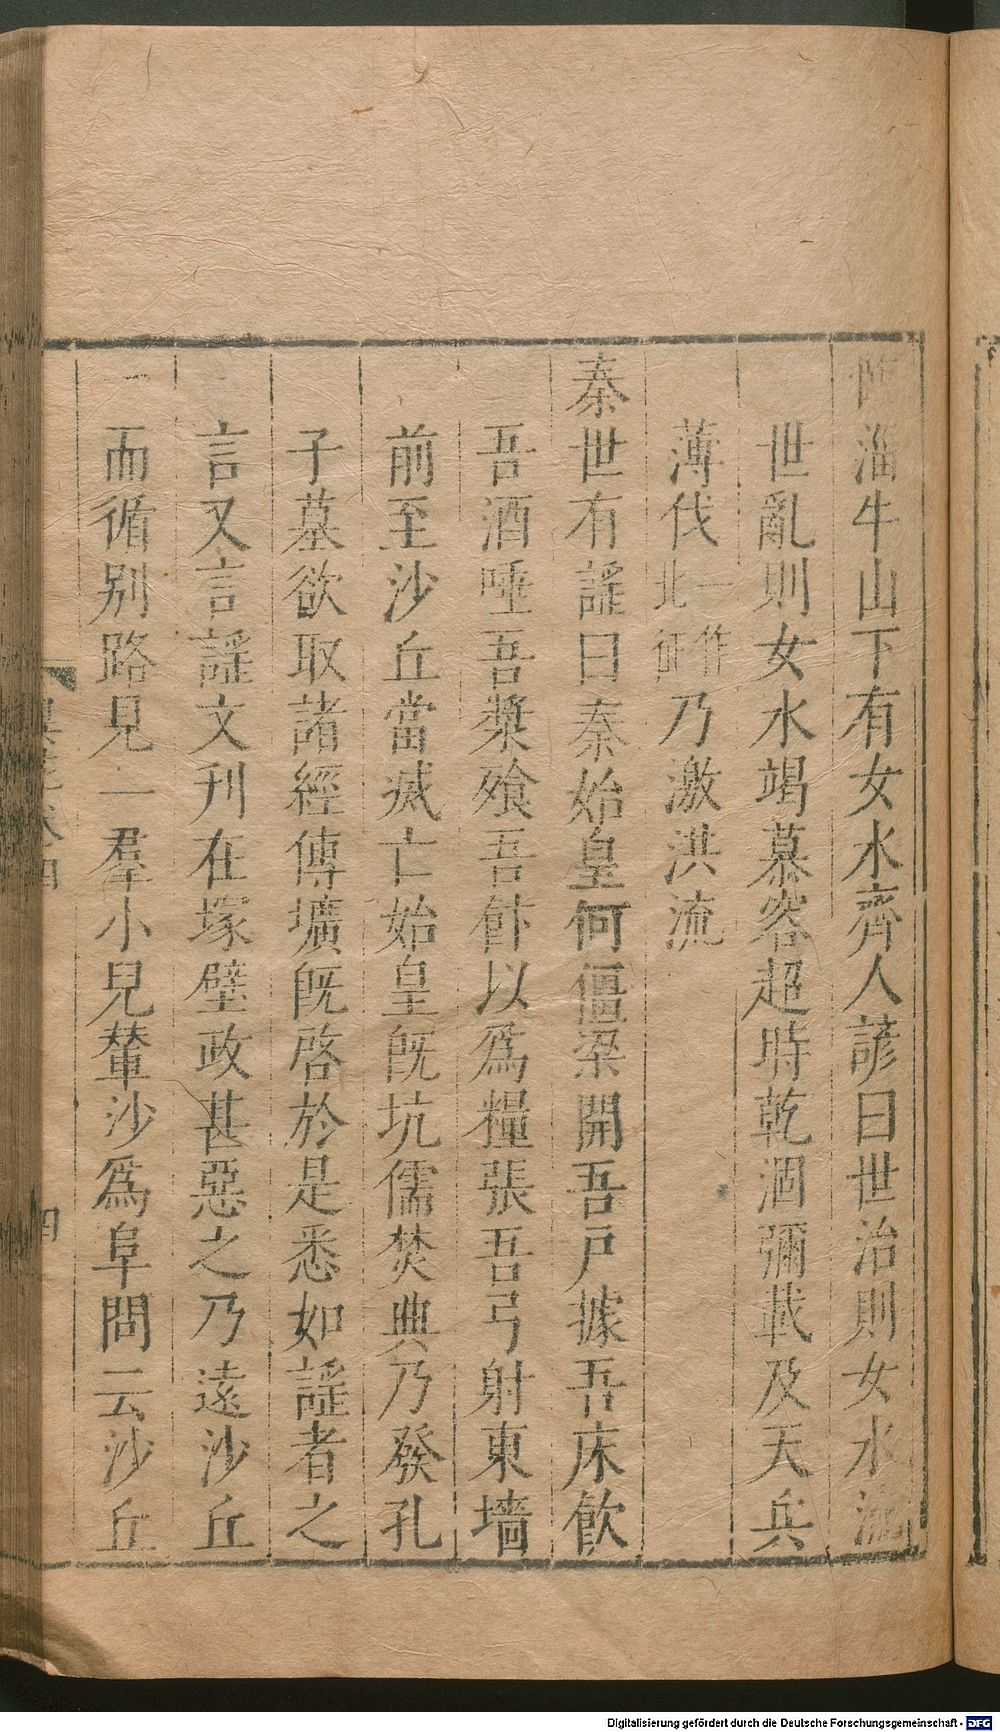 臨淄牛山下有女水齊人諺曰世治則女水流
世亂則女水竭慕容超時乾涸彌載及天兵
薄伐一作北征乃激洪流
秦世有謡曰秦始皇何僵梁開吾戸據吾床飲
吾酒唾吾漿飱吾飰以為糧張吾弓射東墻
前至沙丘當滅亡始皇既坑儒焚典乃發孔
子墓欲取諸經傳壙既啓於是悉如謡者之
言又言謡文刊在塚壁政甚惡之乃遠沙丘
而循别路見一羣小兒輦沙為阜問云沙丘
異苑卷四
四
Digitalisierung gefördert durch die Deutsche Forschungsgemeinschaft - DFG